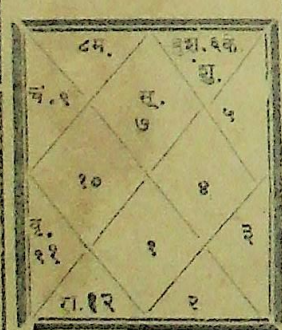 ८म. बु श. ६ के
शु.
चं. ९ सू. ५
७
१० ४
बृ. ३
११ १
रा. १२ २